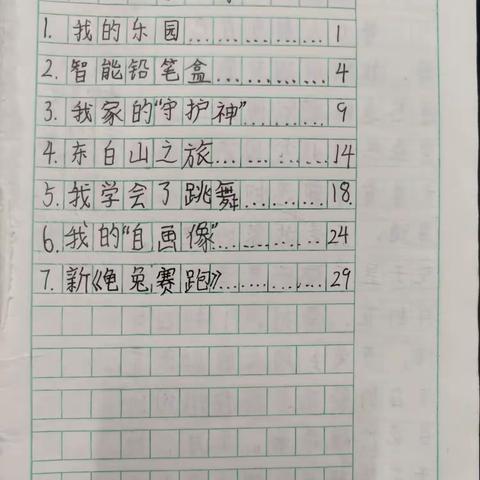 1. 我的乐园............ 1
2. 智能铅笔盒............ 4
3. 我家的“守护神”......... 9
4. 东白山之旅............ 14
5. 我学会了跳舞......... 18
6. 我的“自画像”......... 24
7. 新《龟兔赛跑》............ 29